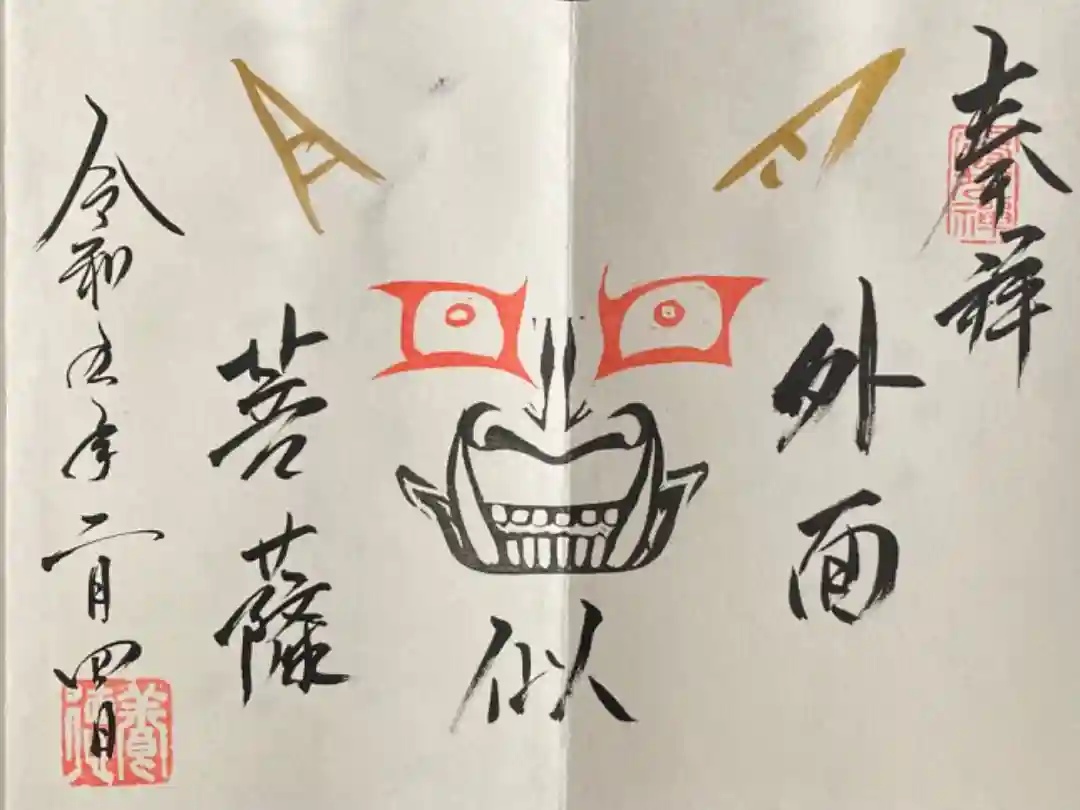 奉拝
外面
似
菩薩
令和五年二月四日
養徳